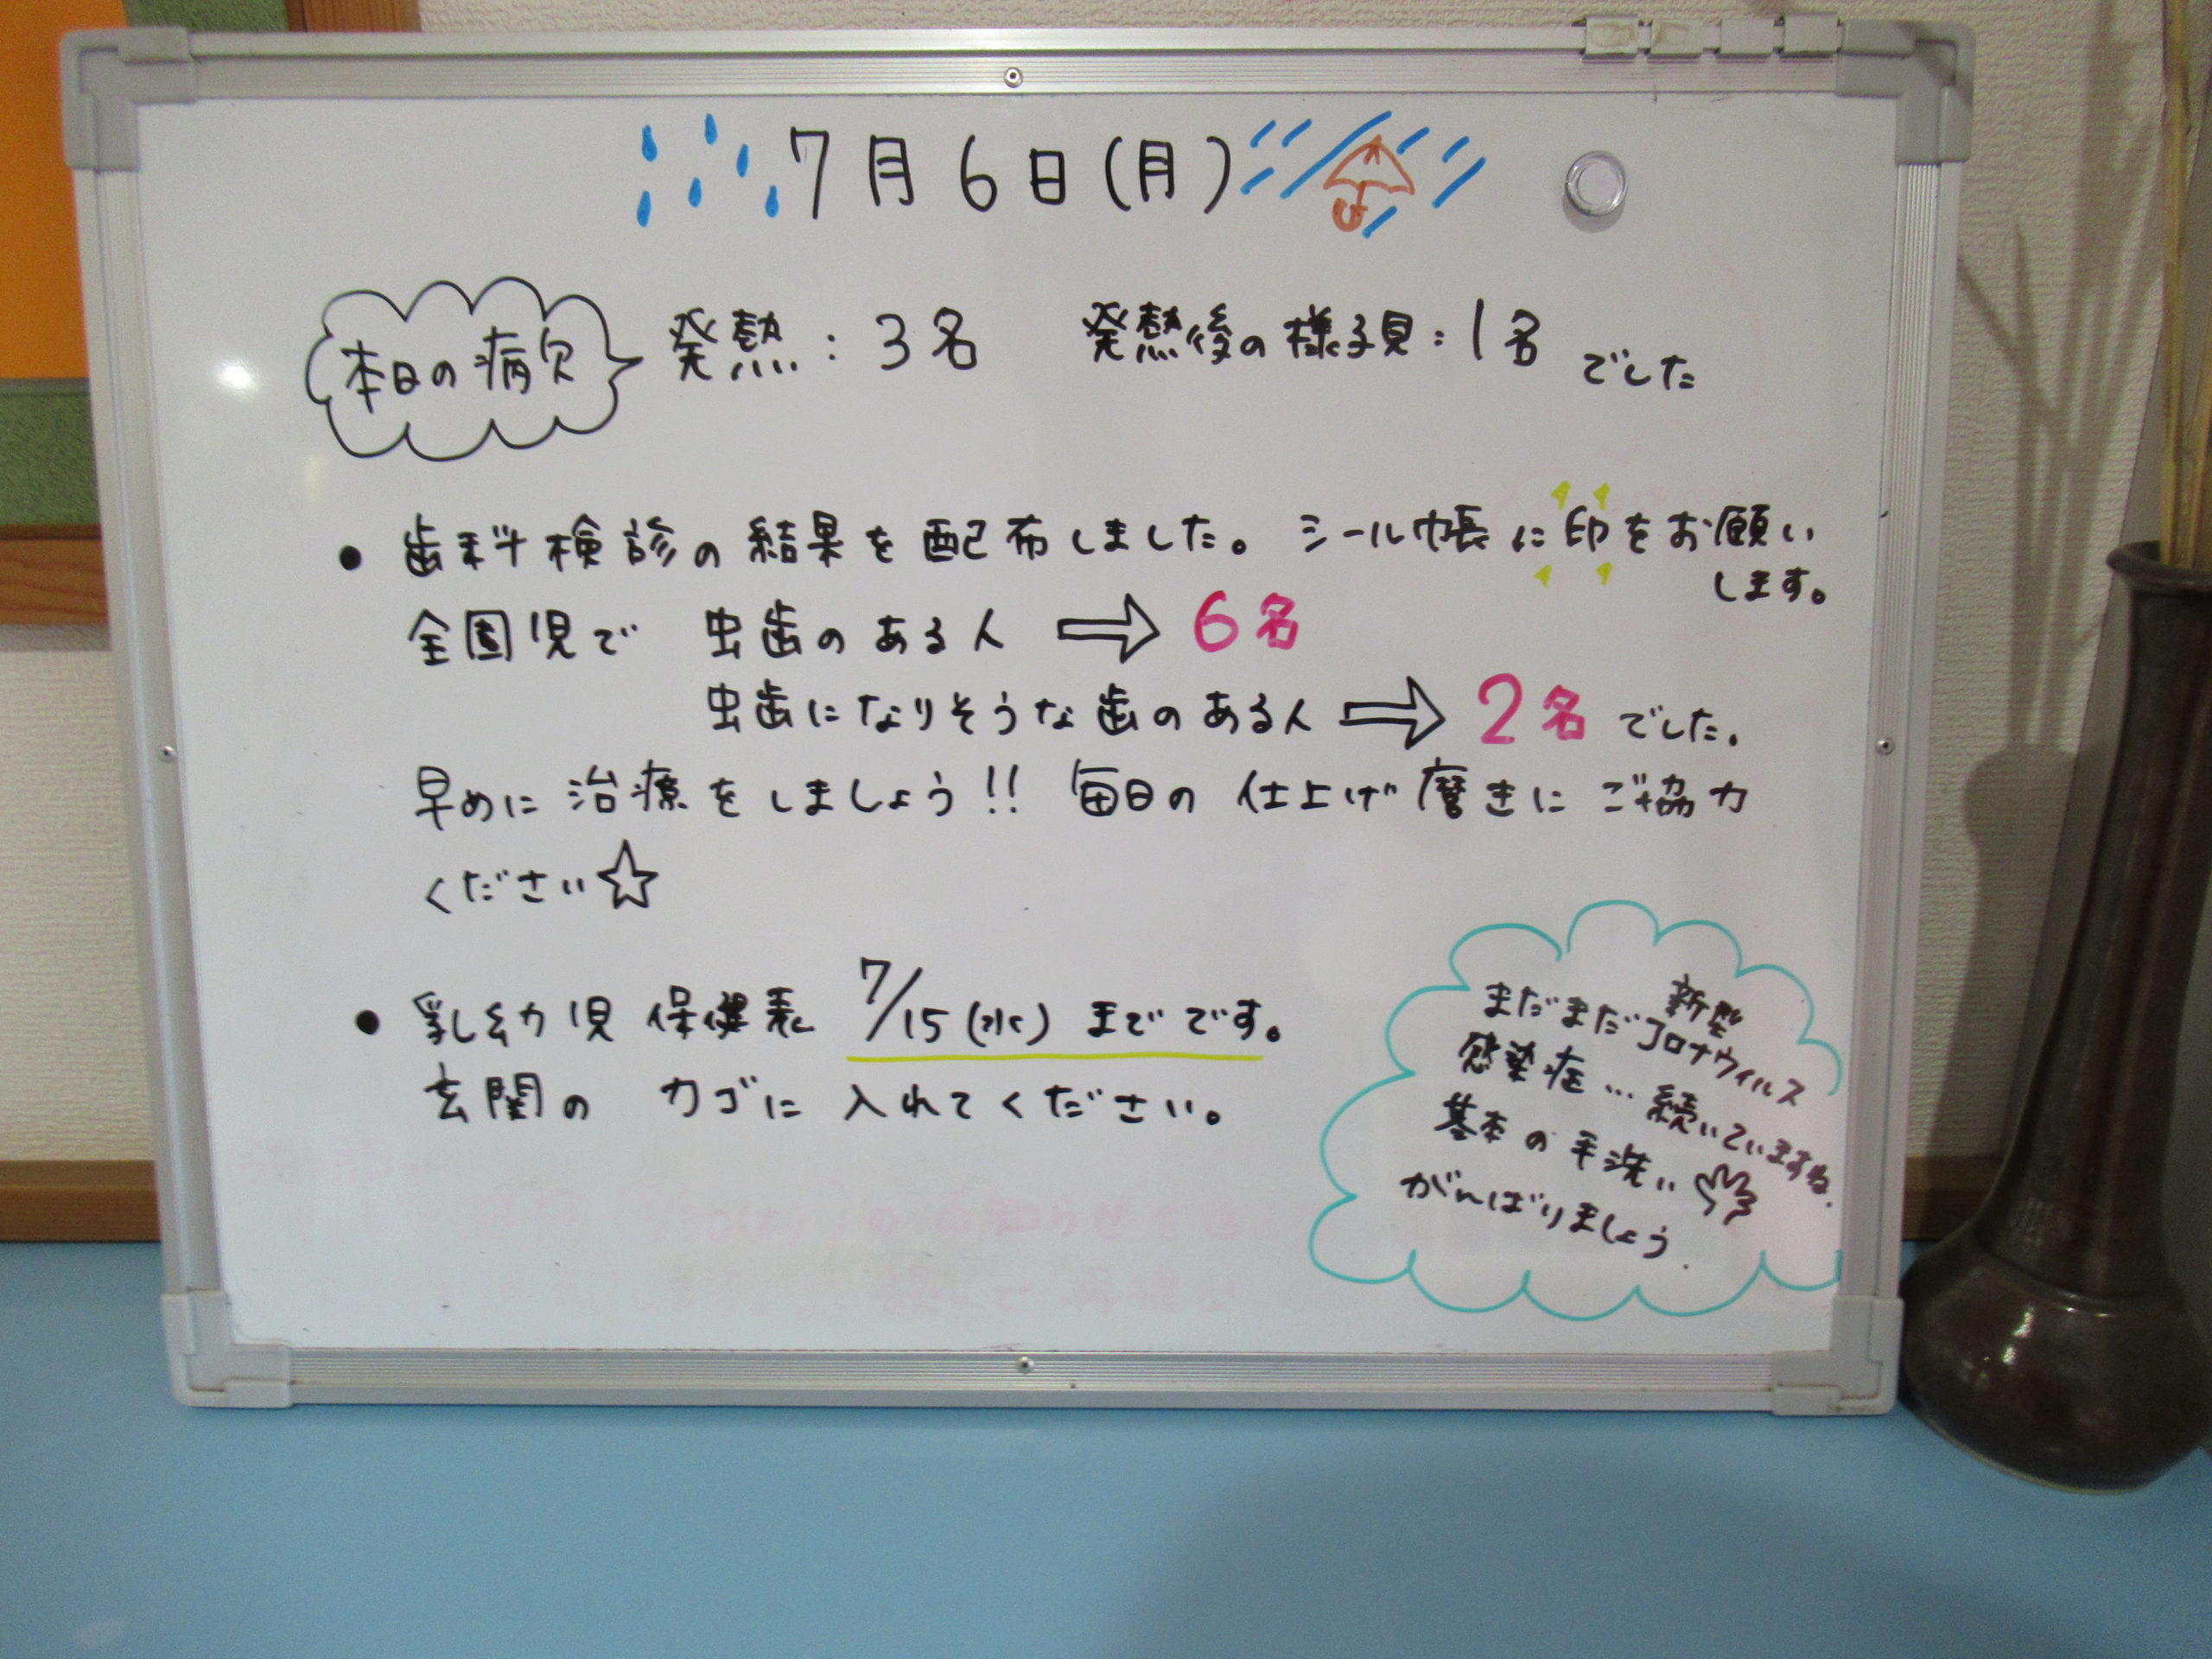 7月6日(月)
本日の病欠
発熱:3名 発熱後の様子見:1名 でした
• 歯科検診の結果を配布しました。シール帳に印をお願い
します。
全園児で 虫歯のある人 ⇨ 6名
虫歯になりそうな歯のある人 ⇨ 2名 でした.
早めに治療をしましょう!! 毎日の仕上げ磨きにご協力
ください☆
• 乳幼児保健表 7/15(水)までです。
玄関の カゴに 入れてください。
まだまだ新型コロナウィルス
感染症…続いていますね.
基本の手洗い
がんばりましょう.